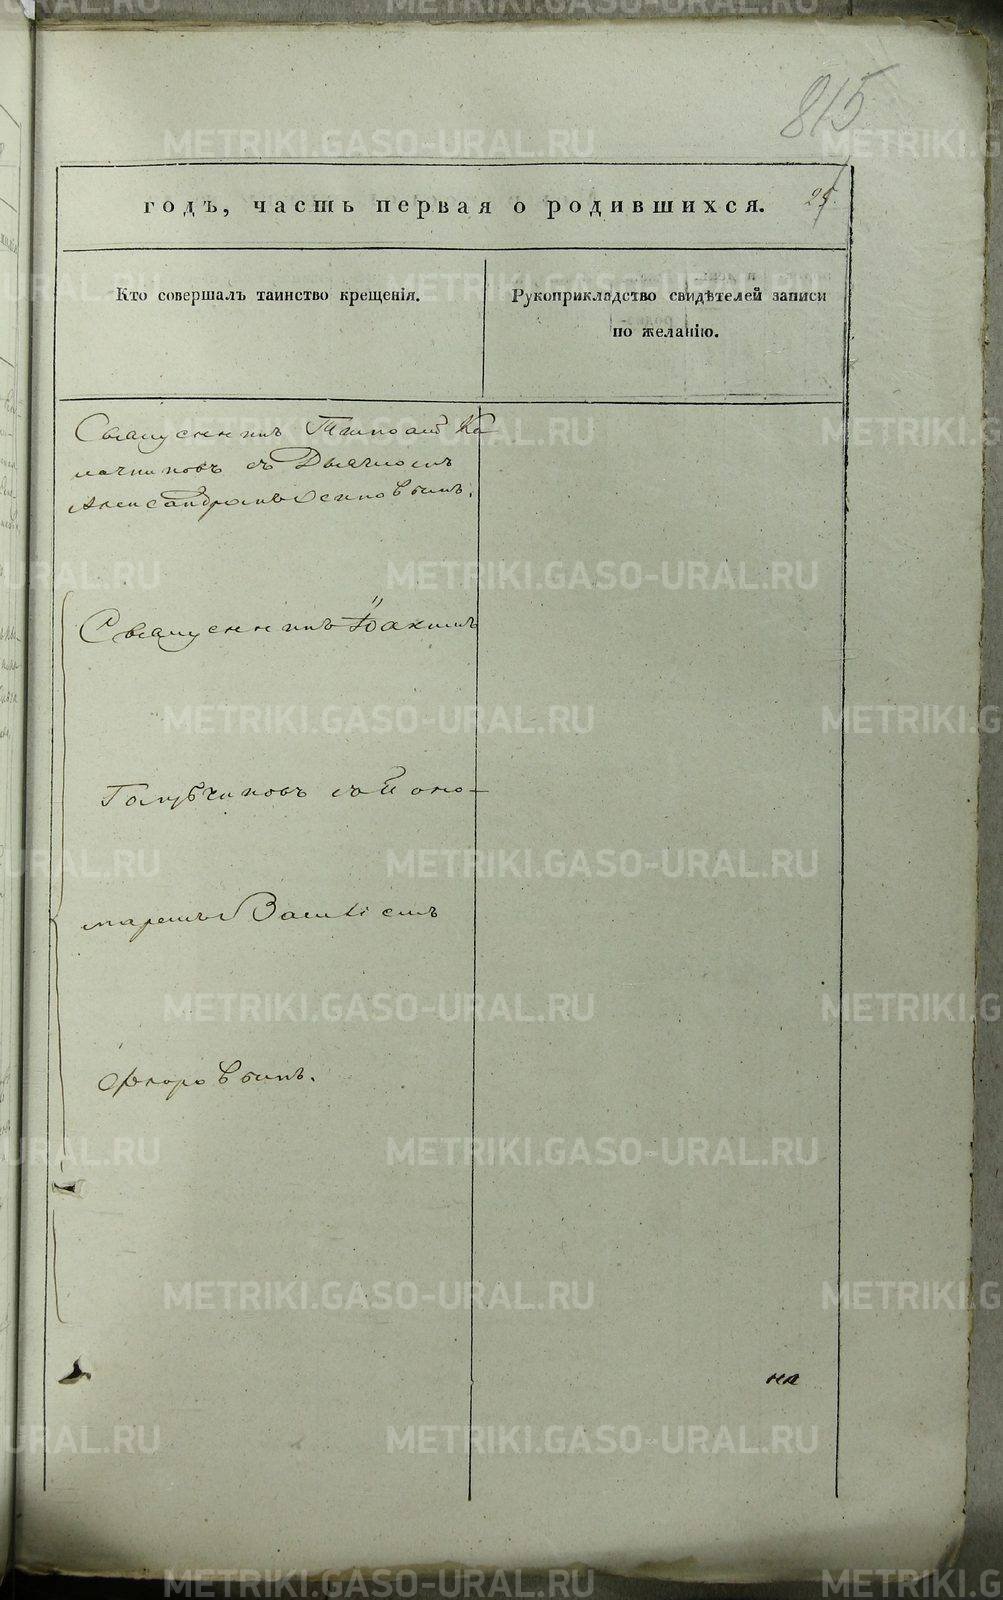 815
годъ, часть первая о родившихся.
25.
Кто совершалъ таинство крещенія.
Рукоприкладство свидѣтелей записи
по желанію.
Священникъ Тимофей Ка
лачниковъ съ Дьячкомъ
Александромъ Осиповымъ.
Священникъ Іоакимъ
Голубчиковъ съ Поно-
маремъ Василіемъ
Флоровымъ.
на
METRIKI.GASO-URAL.RU